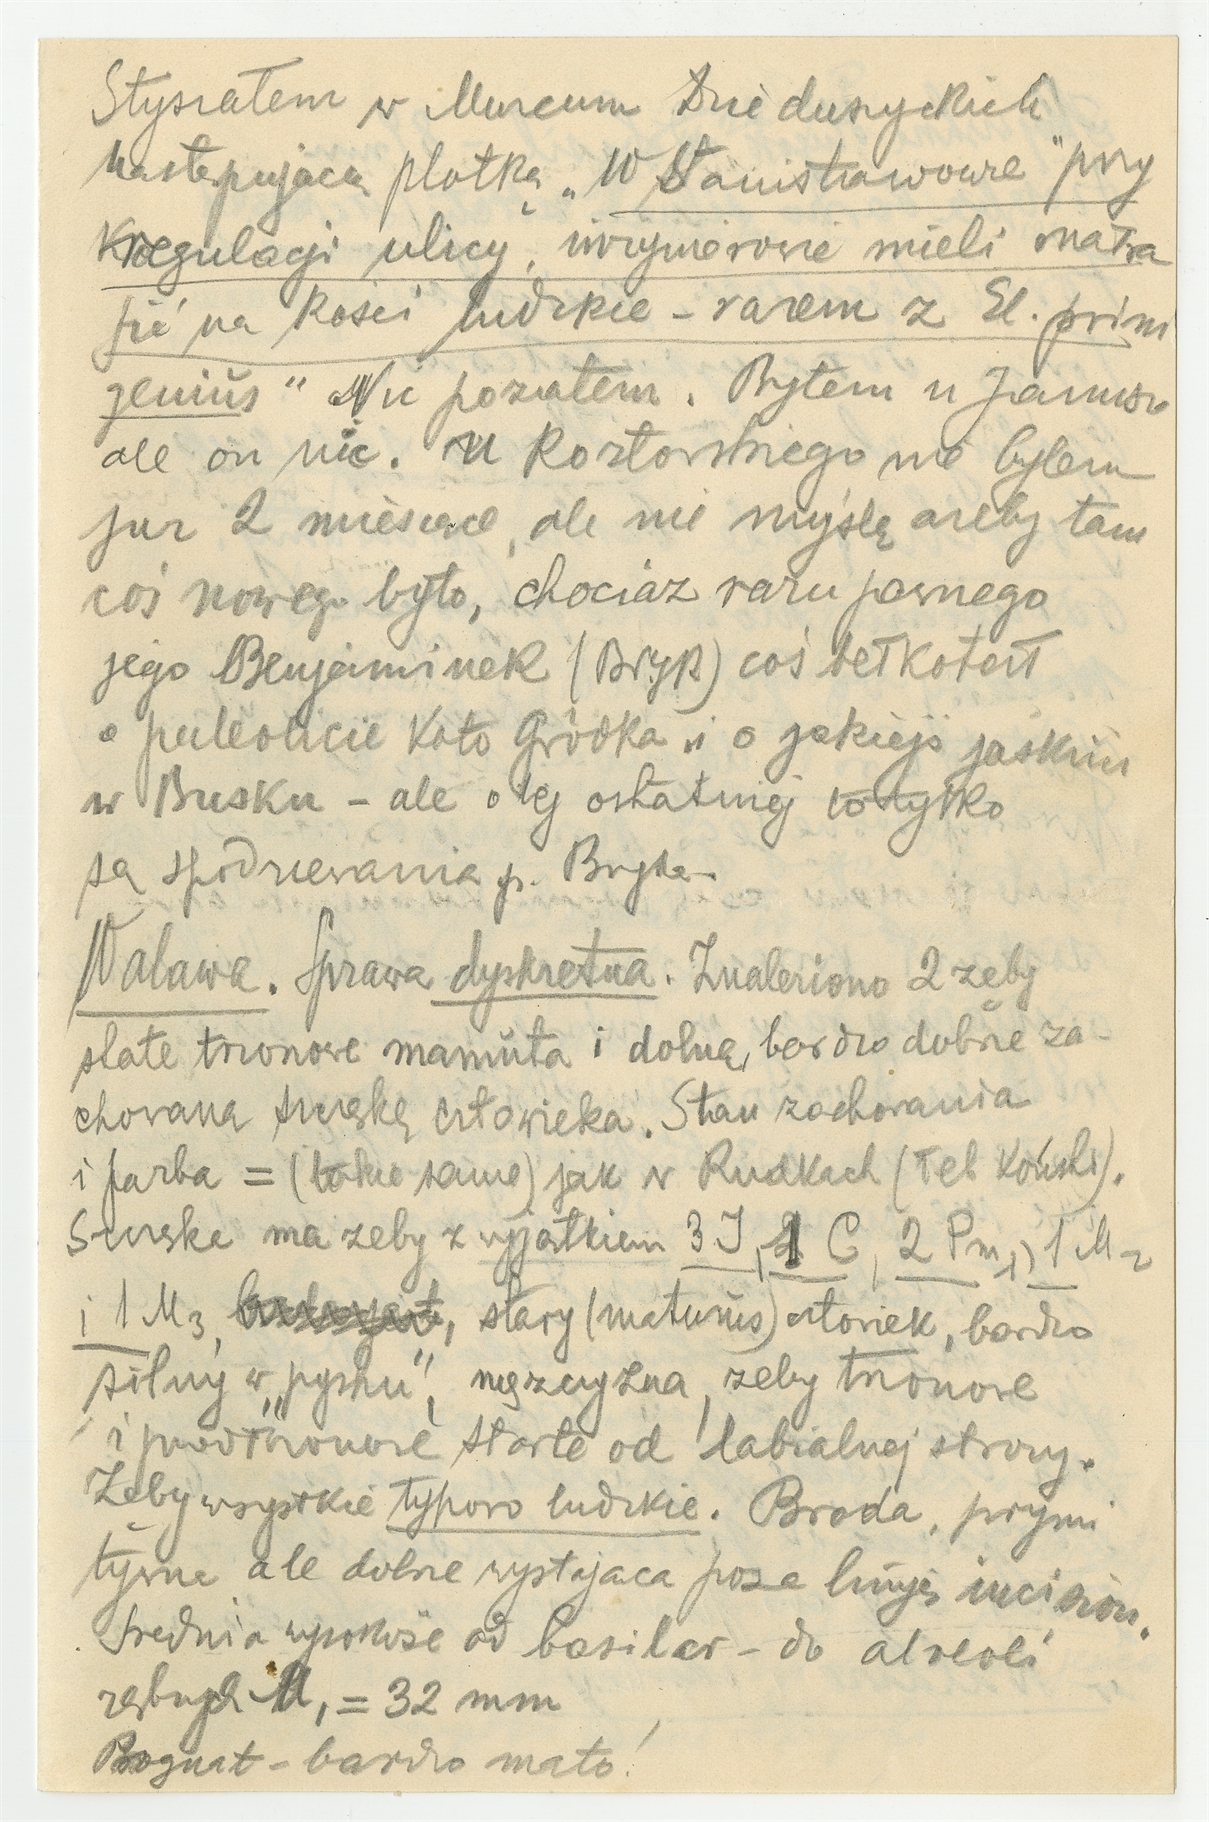 Słyszałem w Muzeum Dzieduszyckich
następującą plotkę „W Stanisławowie" przy
regulacji ulicy, inżynierowie mieli natra
fić na kości ludzkie – razem z El. prim
genius" Nic pozatem. Byłem u Janusza
ale on nic. U Kozłowskiego nie byłem
już 2 miesiące, ale nie myślę ażeby tam
coś nowego było, chociaż razu pewnego
jego Benjaminek (Bryk) coś bełkotał
o paleolicie koło Gródka i o jakiejś jaskini
w Busku – ale o tej ostatniej to tylko
są spodziewania p. Bryka.
Walawa. Sprawa dyskretna. Znaleziono 2 zęby
stałe trzonowe mamuta i dolną, bardzo dobrze za-
chowaną szczękę człowieka. Stan zachowania
i farba = (takie same) jak w Rudkach (łeb koński).
Szczęka ma zęby z wyjątkiem 3 I, 1 C, 2 Pm, 1 M2
i 1 M3, stary (maturus) człowiek, bardzo
silny w „pysku", mężczyzna, zęby trzonowe
i przedtrzonowe starte od labialnej strony.
Zęby wszystkie typowo ludzkie. Broda, prymi
tywna ale dobrze wystająca poza linję incisiów.
Średnia wysokość od basilar – do alveoli
zębuje M1 = 32 mm
Prognat – bardzo mało!